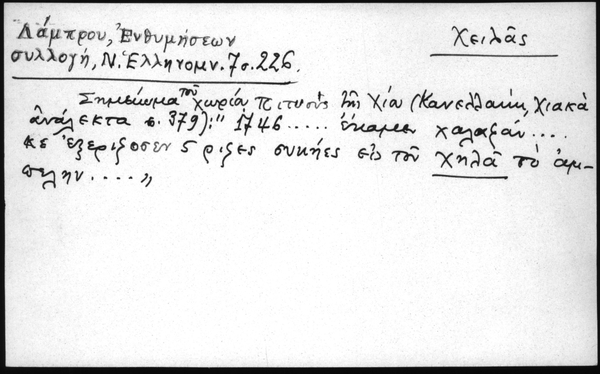 Λάμπρου, Ἐνθυμήσεων
συλλογή, Ν. Ἑλληνομν. 7 σ. 226.
Χειλᾶς
Σημείωμα τοῦ χωρίου Πιτυοῦς τῆς Χίου (Κανελλάκη, Χιακὰ
ἀνάλεκτα σ. 379): "1746..... ἔκαμεν χαλαζάν....
κὲ ἐξερίζοσεν 5 ριζες συκήες εἰσ τοῦ Χηλᾶ τὸ ἀμ-
πέλην....„